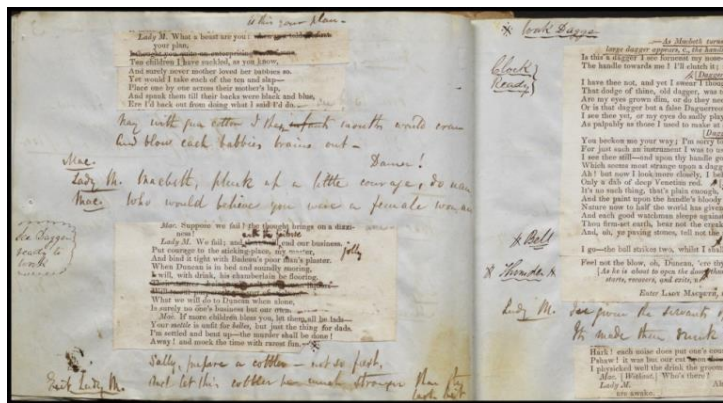 is this your plan -
Lady M. What a beast are you!
your plan,
Ten children I have suckled, as you know,
And surely never mother loved her babbies so.
Yet would I take each of the ten and slap—
Place one by one across their mother's lap,
And spank them till their backs were black and blue,
Ere I'd back out from doing what I said I'd do.
Nay with gun cotton I their infants mouths would cram
And blow each babbies brains out -
Mac. Damn!
Lady M. Macbeth, pluck up a little courage, do man
Mac. Who would believe you were a female woman
Mac. Suppose we fail? the thought brings on a dizzi-
ness!
Lady M. We fail; and end our business.
Put courage to the sticking-place, my jolly
And bind it tight with Badom's poor man's plaster.
When Duncan is in bed and soundly snoring,
I will, with drink, his chamberlain be flooring.
What we will do to Duncan when alone,
Is surely no one's business but our own.
Mac. If more children bless you, let them all be lads—
Your mettle is unfit for belles, but just the thing for dads.
I'm settled and bent up—the murder shall be done!
Away! and mock the time with rarest fun.
See Dagger
ready to
work
Sally, prepare a cobbler - not so fast,
Exit Lady M. And let this cobbler be much stronger than the
last
* Work Dagger
Clock
Ready
—As Macbeth turns
large dagger appears, c., the handle
Is this a dagger I see forenent my nose—
The handle towards me? I'll clutch it;
[Dagger
I have thee not, and yet I swear I thought
That dodge of thine, old dagger, was
Are my eyes grown dim, or do they
Or is that dagger but a false Daguerreo
I see thee yet, or my eyes do sadly play
As palpably as those I used to make at
[Dag
You beckon me your way; I'm sorry
For just such an instrument I was to
I see thee still—and upon thy handle
Which seems most strange upon a dagger
Ah! but now I look more closely, I
Only a dab of deep Venetian red.
It's no such thing, that's plain enough
And the paint upon the handle's bloody
Nature now to half the world has given
And each good watchman sleeps against
Thou firm-set earth, hear not the
And, oh, ye paving stones, tell not the
* Bell
I go—the bell strikes two, whilst I
* Thunder *
Feel not the blow, oh, Duncan, 'ere thy
[As he is about to open the door
starts, recovers, and exits,
Enter LADY MACBETH,
Lady M. given the servants
It's made them drunk
Hark! each noise puts one's
Pshaw! it was but our cat
I physicked well the drink the
Mac. [Without.] Who's there!
Lady M.
are awake.